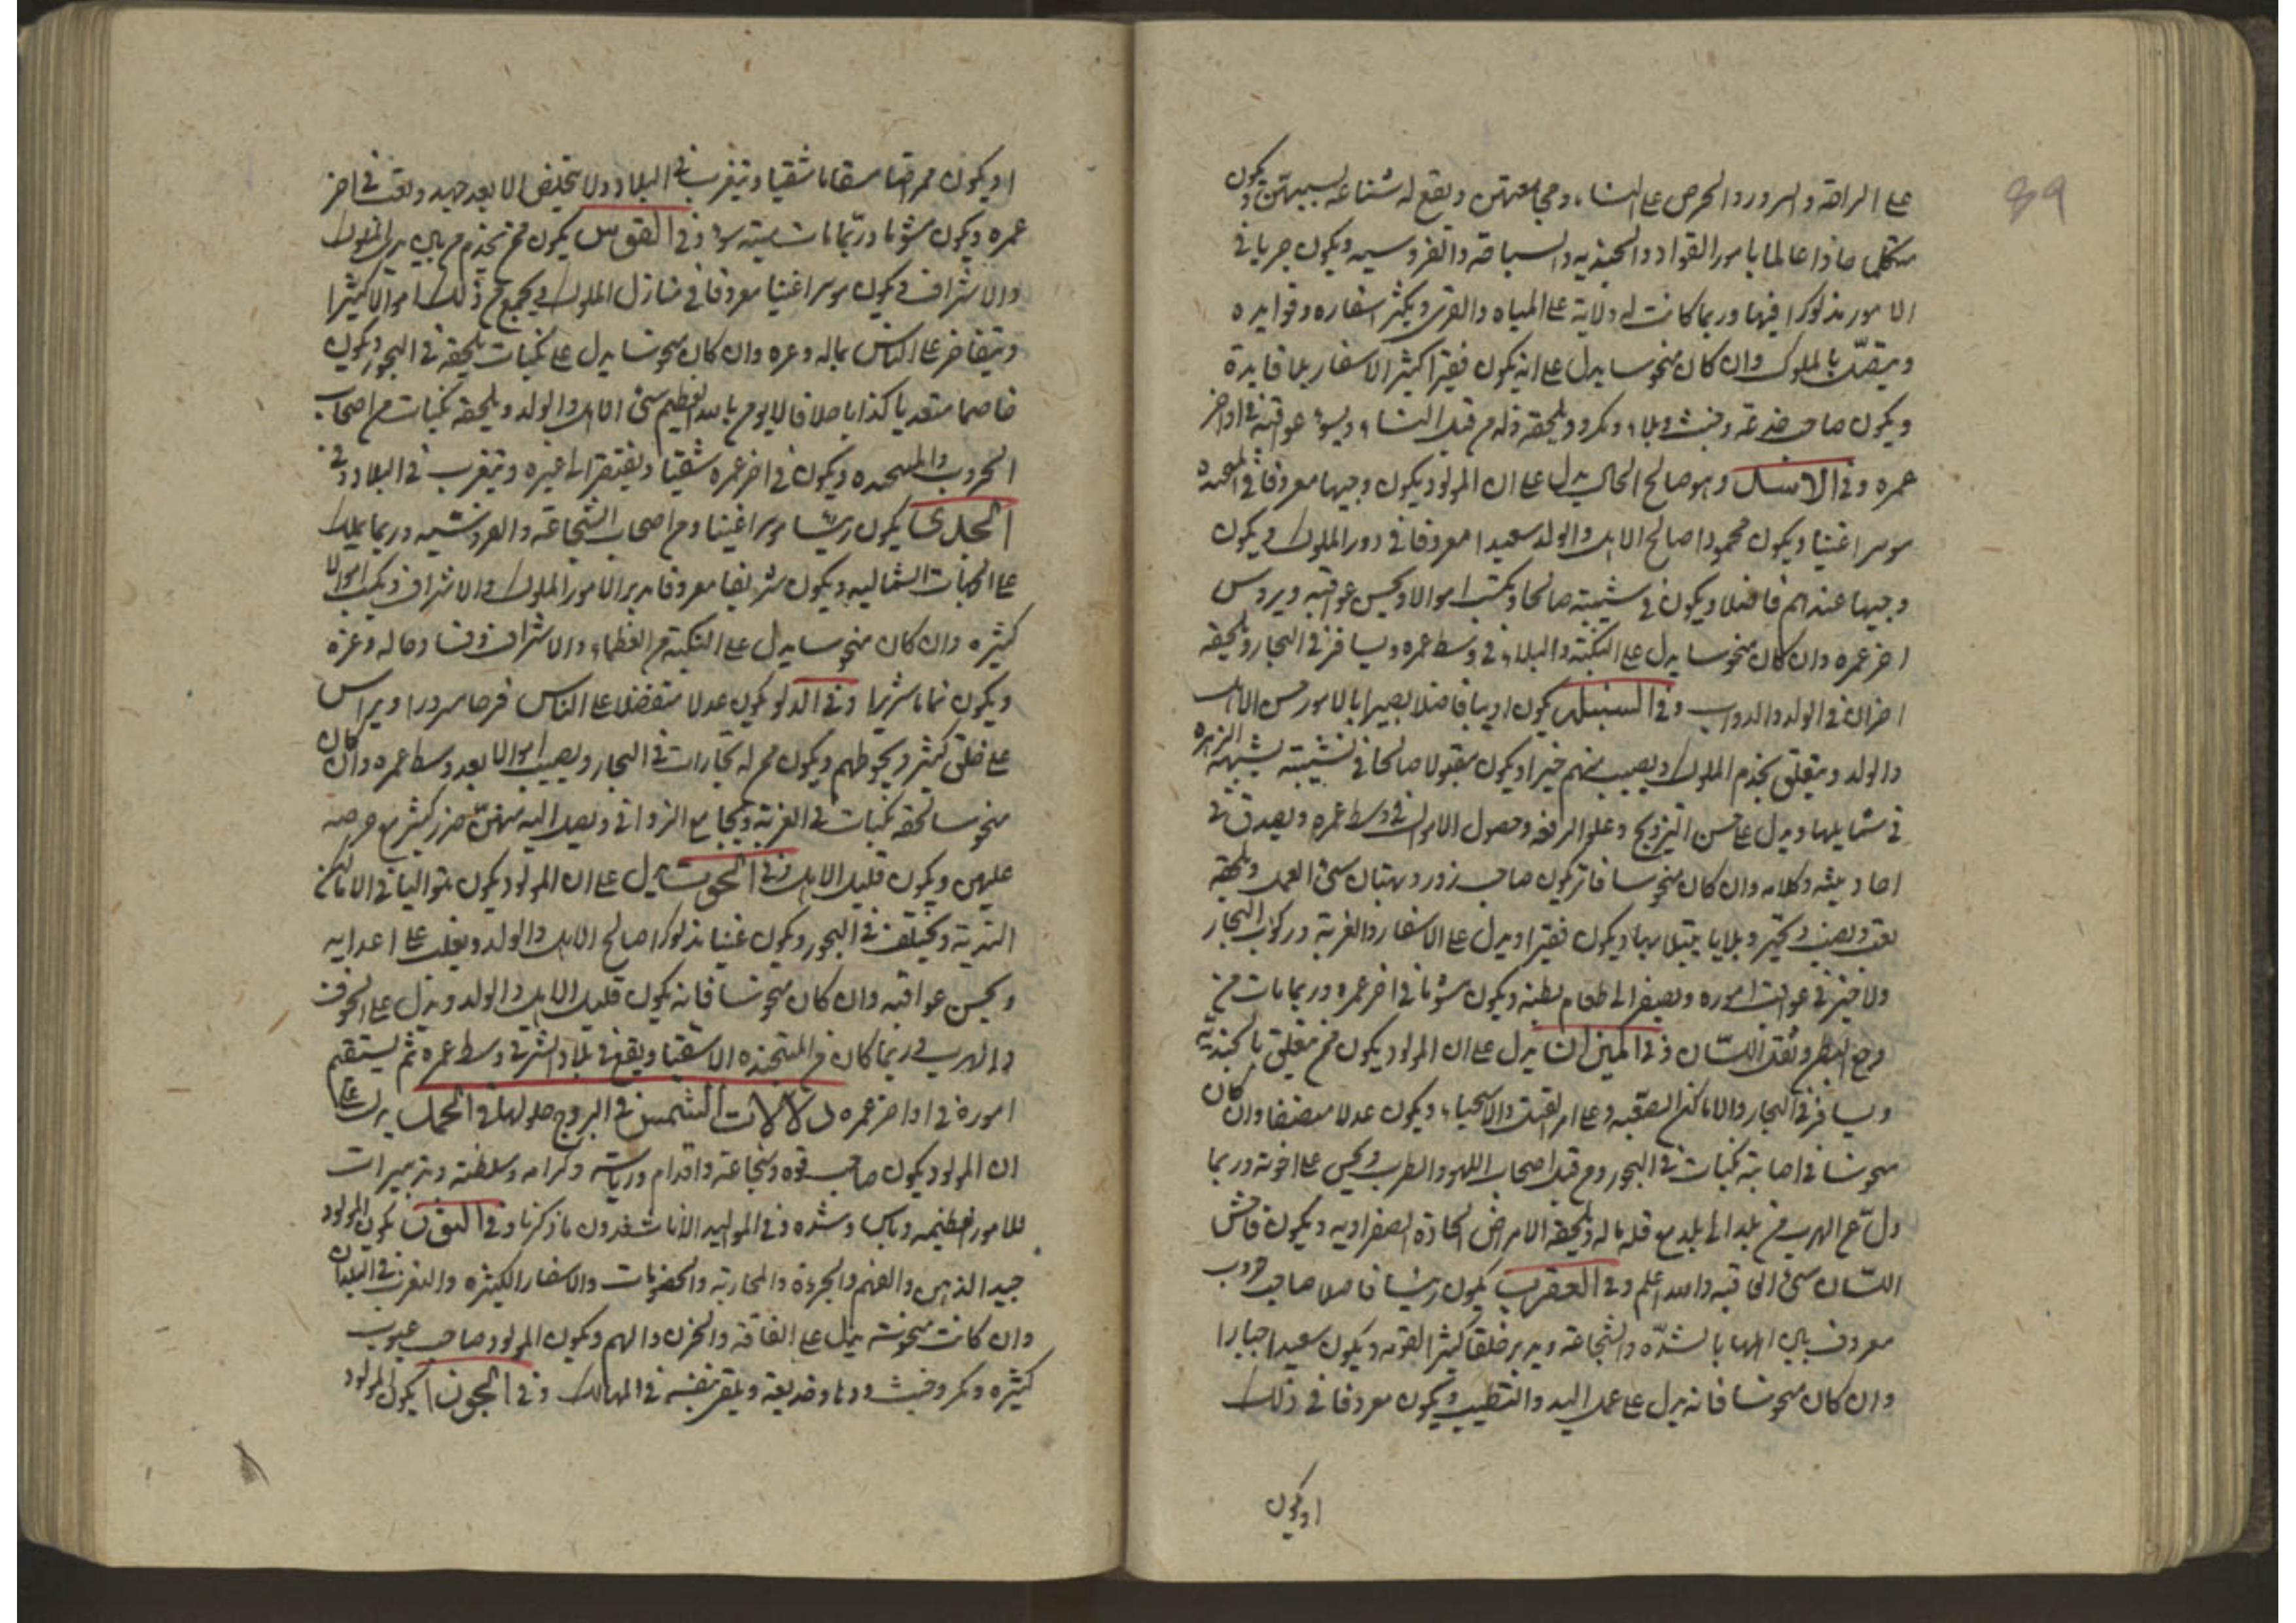 89
على الراحة والسرور والحرص على النساء ومجامعتهن ويقع له شناعه بسببهن ويكون
متكلما حاذقا عالما بامور القواد والجنديه والسياحة والفروسيه ويكون جريا في
الامور مذكورا فيها وربما كانت له ولاية على المياه والقرى ويكثر اسفاره وفوايده
ويتصل بالملوك وان كان منحوسا يدل على انه يكون فقيرا كثير الاسفار بلا فايدة
ويكون صاحب خدعة وخبث وبلاء ومكر ويلحقه ذله من قبل النساء ويسوء عواقبه في اواخر
عمره وفي الاسد وهو صالح الحال يدل على ان المولود يكون وجيها معروفا في
موسرا غنيا ويكون محمودا صالح الاهل والولد سعيدا معروفا في دور الملوك ويكون
وجيها عندهم فاضلا ويكون في شيبته صالحا ويكتسب اموالا ويحسن عواقبه ويروس
اخر عمره وان كان منحوسا يدل على النكبة والبلاء في وسط عمره ويسافر في البحار ويلحقه
احزان في الولد والدواب وفي السنبله يكون اديبا فاضلا بصيرا بالامور حسن الاهل
والولد ويتعلق بخدم الملوك ويصيب منهم خيرا ويكون مقبولا صالحا في شيبته يشبه الزهره
في شمايلها ويدل على حسن التزويج وعلو الرفعه وحصول الاموال في وسط عمره ويصدق في
احاديثه وكلامه وان كان منحوسا فانه يكون صاحب زور وبهتان سئ العمل ويلحقه
تعب ونصب وتحير وبلايا يبتلا بها ويكون فقيرا ويدل على الاسفار والغربة وركوب البحار
ولا خير في عواقب اموره ويصير الى طعام بطنه ويكون مشؤما في اخر عمره وربما مات من
وجع البطن وثقل اللسان وفي الميزان يدل على ان المولود يكون ممن تعلق بالجنديه
ويسافر في البحار والاماكن الصعبه وعلى امر القتل والاستحياء ويكون عدلا منصفا وان كان
منحوسا في اصابته نكبات في البحور ومن قبل اصحاب اللهو والطرب ويحبس على اخوته وربما
دل على الهرب من بلد الى بلد مع قلة ماله ويلحقه الامراض الحادة الصفراويه ويكون فاحش
اللسان سئ العاقبه والله اعلم وفي العقرب يكون رئيسا فاضلا صاحب حروب
معروف بالشدة والشجاعة ويدبر خلقا كثير القوه ويكون سعيدا جبارا
وان كان منحوسا فانه يدل على عمل اليد والتطبيب ويكون معروفا في ذلك
او يكون
او يكون ممراضا سقاما شقيا ويتغرب في البلاد ولا يتخلص الا بعد جهد وتعب في اخر
عمره ويكون مشؤما وربما مات ميتة سوء وفي القوس يكون ممن يخدم بين يدي الملوك
والاشراف ويكون موسرا غنيا معروفا في منازل الملوك ويجمع من ذلك اموالا كثيرا
ويتفاخر على الناس بماله وعزه وان كان منحوسا يدل على نكبات تلحقه في البحور ويكون
خاصما متعديا كذابا حلافا لا يؤمن بالله العظيم سئ الاهل والولد ويلحقه نكبات من اصحاب
الحروب ويكون في اخر عمره شقيا ويفتقر الى غيره ويتغرب في البلاد وفي
الجدي يكون رئيسا موسرا غنيا ومن اصحاب الشجاعة والفروسيه وربما يملك
على الجهات الشماليه ويكون شريفا معروفا مدبرا لامور الملوك والاشراف ويكسب اموالا
كثيره وان كان منحوسا يدل على النكبة من العظماء والاشراف وفساد حاله وعزه
ويكون نماما شريرا وفي الدلو يكون عدلا متفضلا على الناس فرحا مسرورا ويراس
على خلق كثير ويحوطهم ويكون ممن له تجارات في البحار ويصيب اموالا بعد وسط عمره وان كان
منحوسا لحقه نكبات في الغربة ويجامع الزواني ويصل اليه منهن ضرر كثير مع حرصه
عليهن ويكون قليل الاهل وفي الحوت يدل على ان المولود يكون متواليا في الاماكن
النديه ويختلف في البحور ويكون غنيا مذكورا صالح الاهل والولد ويغلب على اعدايه
ويحسن عواقبه وان كان منحوسا فانه يكون قليل الاهل والولد ويدل على الخوف
والهرب وربما كان من الاشقيا ويقع في بلاد الشر في وسط عمره ثم يستقيم
اموره في اواخر عمره دلالات الشمس في البروج حلولها في الحمل يدل على
ان المولود يكون صاحب قوه وشجاعة واقدام ورياسته وكرامه وسلطنه وتدبيرات
للامور العظيمه وباس وشده وفي المواليد الاناث فدون ما ذكرنا وفي الثور يكون المولود
جيد الذهن والفهم والجرءة والمحاربة والخصومات والاسفار الكثيره والتغرب في البلدان
وان كانت منحوسة يدل على الفاقة والحزن والهم ويكون المولود صاحب عيوب
كثيره ومكر وخبث ودها وخديعة ويلقي نفسه في المهالك وفي الجوزا يكون المولود